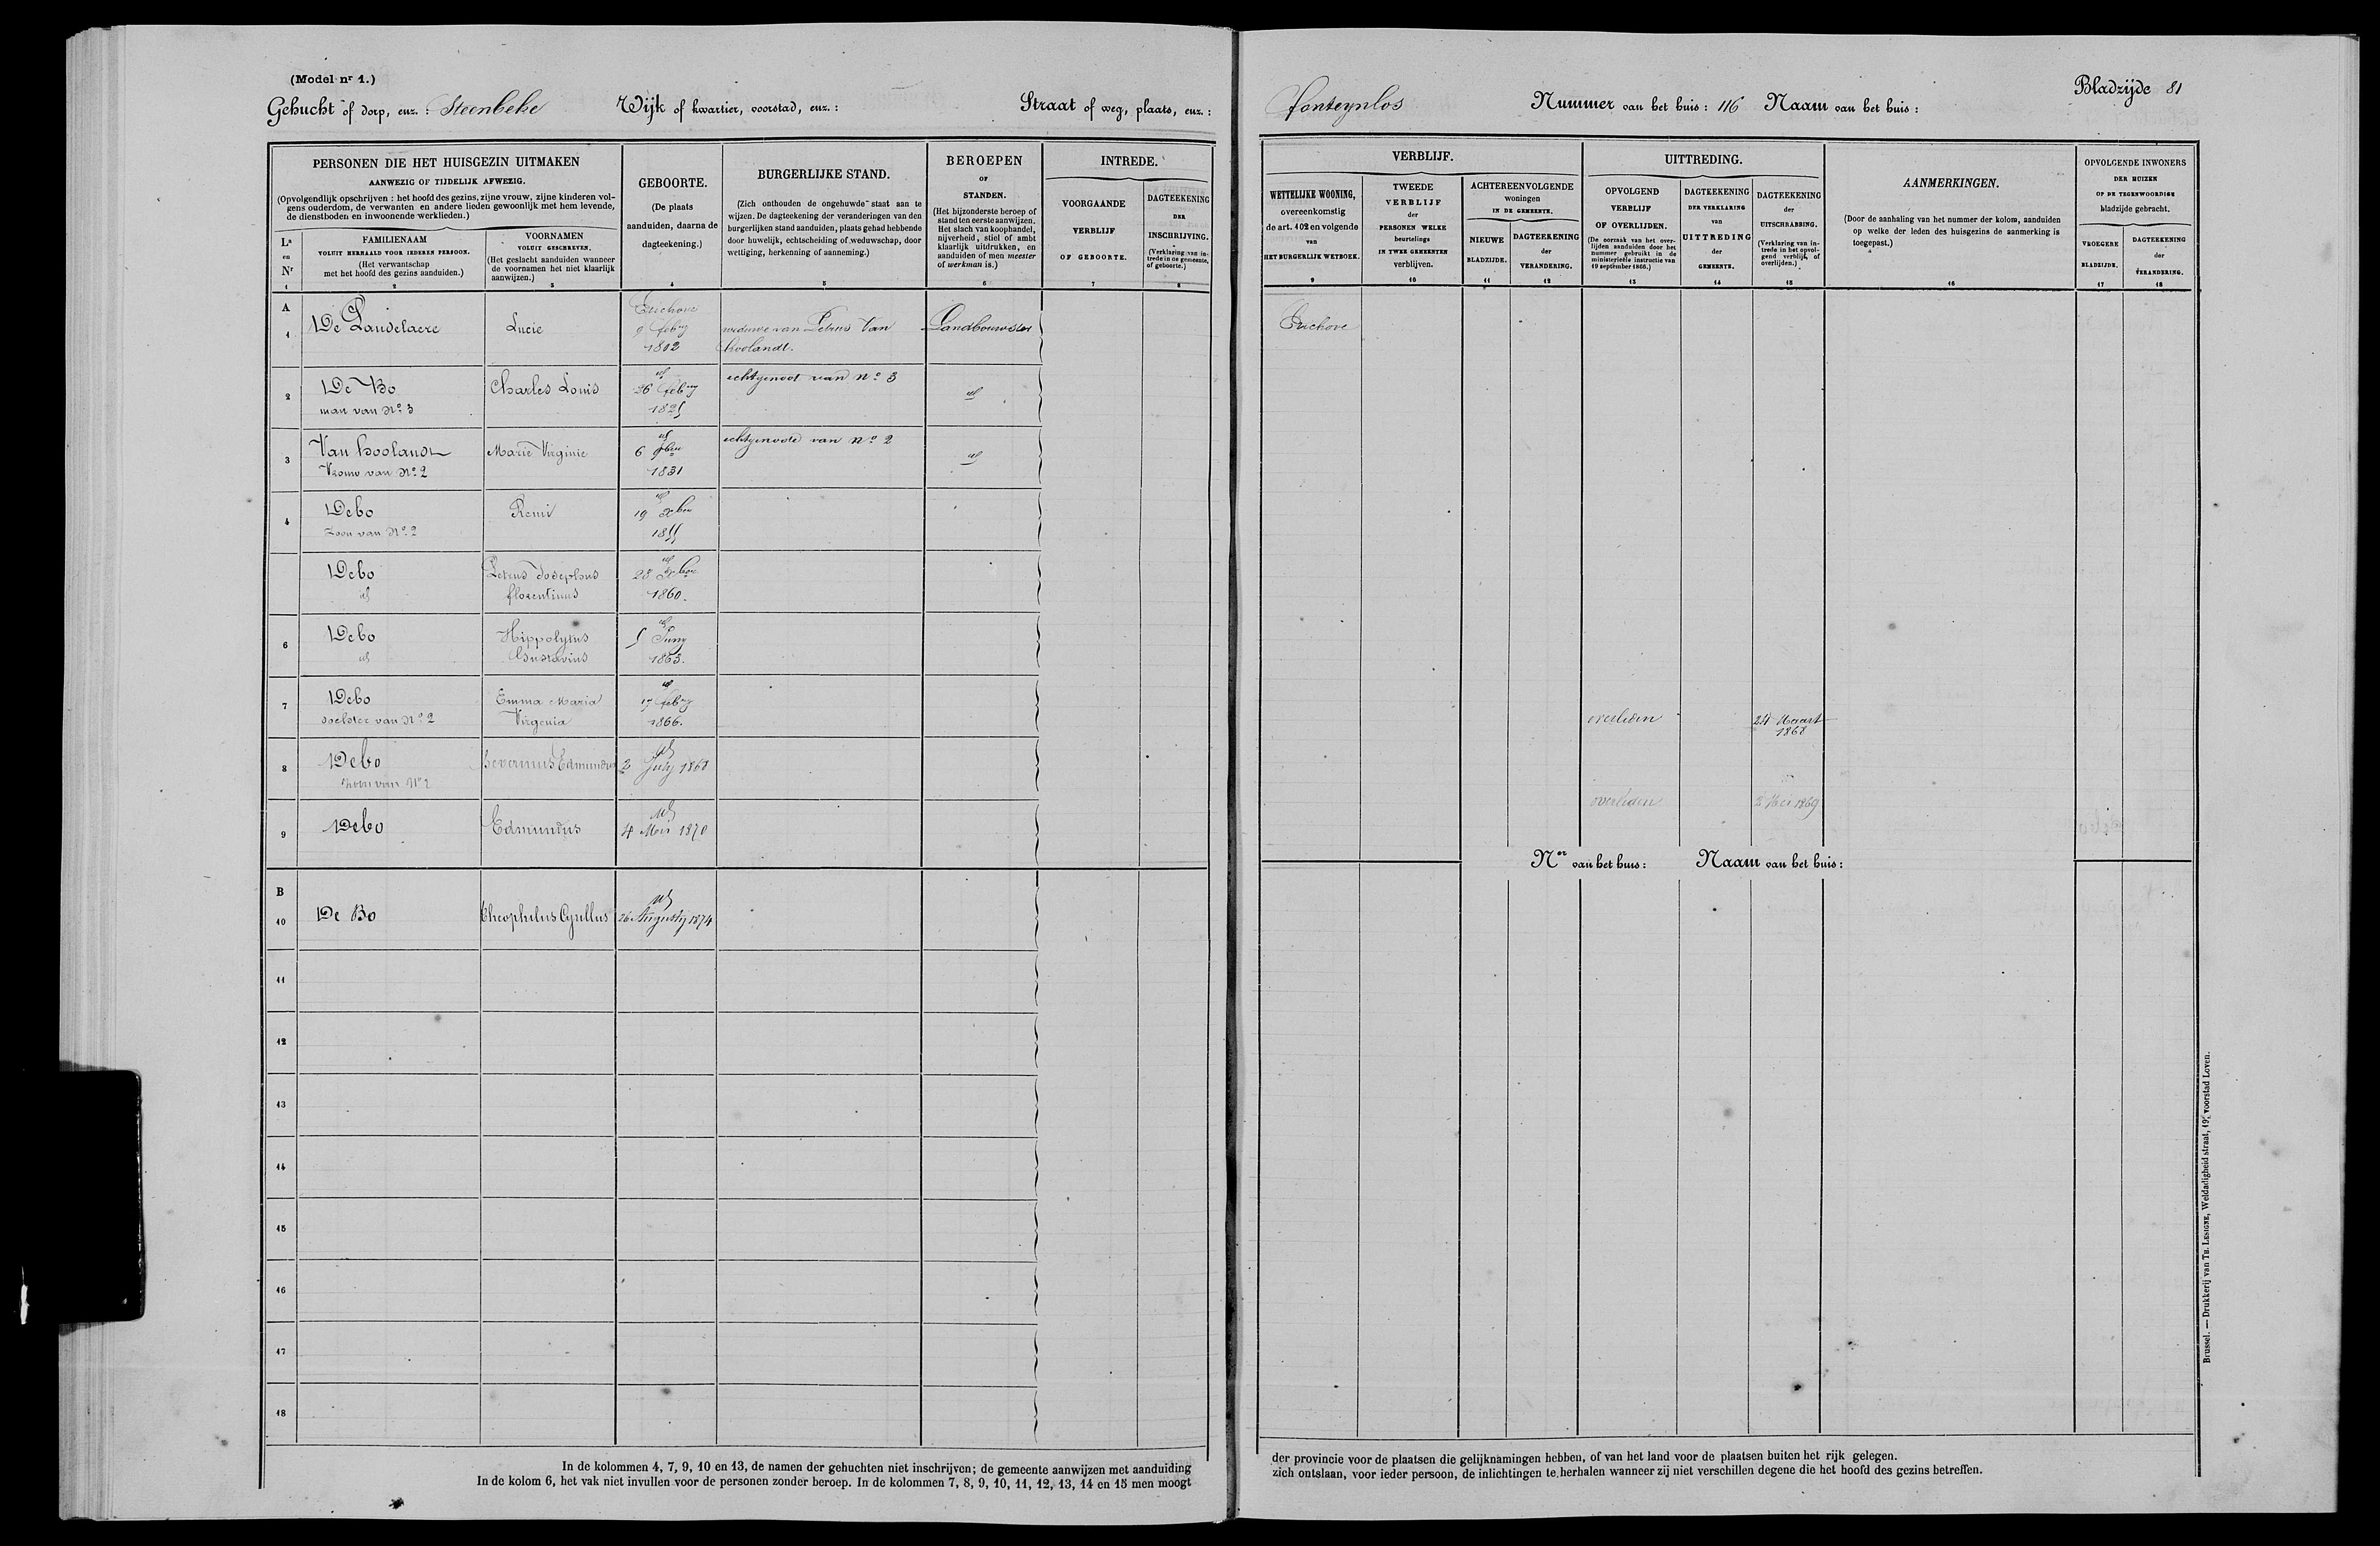 (Model nr 1.)
Gehucht of dorp, enz. : Steenbeke Wijk of kwartier, voorstad, enz. : Straat of weg, plaats, enz. :
PERSONEN DIE HET HUISGEZIN UITMAKEN
AANWEZIG OF TIJDELIJK AFWEZIG.
(Opvolgendlijk opschrijven : het hoofd des gezins, zijne vrouw, zijne kinderen vol-
gens ouderdom, de verwanten en andere lieden gewoonlijk met hem levende,
de dienstboden en inwoonende werklieden.)
La
en
Nr
1
FAMILIENAAM
VOLUIT HERHAALD VOOR IEDEREN PERSOON.
(Het verwantschap
met het hoofd des gezins aanduiden.)
2
VOORNAMEN
VOLUIT GESCHREVEN.
(Het geslacht aanduiden wanneer
de voornamen het niet klaarlijk
aanwijzen.)
3
GEBOORTE.
(De plaats
aanduiden, daarna de
dagteekening.)
4
BURGERLIJKE STAND.
(Zich onthouden de ongehuwde staat aan te
wijzen. De dagteekening der veranderingen van den
burgerlijken stand aanduiden, plaats gehad hebbende
door huwelijk, echtscheiding of weduwschap, door
wettiging, herkenning of aanneming.)
5
BEROEPEN
OF
STANDEN.
(Het bijzonderste beroep of
stand ten eerste aanwijzen.
Het slach van koophandel,
nijverheid, stiel of ambt
klaarlijk uitdrukken, en
aanduiden of men meester
of werkman is.)
6
INTREDE.
VOORGAANDE
VERBLIJF
OF GEBOORTE.
7
DAGTEEKENING
DER
INSCHRIJVING.
(Verklaring van in-
trede in de gemeente,
of geboorte.)
8
A
1 De Landelaere Lucie
Etichove
9 feb ry
1802
weduwe van Petrus Van
hoolandt.
Landbouwster
2 De Bo
man van No 3
Charles Louis
id
26 feb ry
1825
echtgenoot van No 3
id
3 Van hoolandt
Vrouw van No 2
Marie Virginie
id
6 9ber
1831
echtgenoote van No 2
id
4 Debo
Zoon van No 2
Remi
id
19 xber
1855
Debo
id
Petrus Josephus
florentinus
id
28 xber
1860.
6 Debo
id
Hippolytus
Gustavius
id
5 Juny
1863.
7 Debo
dochter van No 2
Emma Maria
Virginia
id
17 feb ry
1866.
8 Debo
zoon van No 2
Severinus Edmundus
id
2 July 1868
9 Debo
Edmundus
id
4 Mei 1870
B
10 De Bo
Theophilus Cyrillus
id
26 Augusty 1874
11
12
13
14
15
16
17
18
In de kolommen 4, 7, 9, 10 en 13, de namen der gehuchten niet inschrijven; de gemeente aanwijzen met aanduiding
In de kolom 6, het vak niet invullen voor de personen zonder beroep. In de kolommen 7, 8, 9, 10, 11, 12, 13, 14 en 15 men moogt
Bladzijde 81
fonteynlos Nummer van het huis : 116 Naam van het huis :
VERBLIJF.
WETTELIJKE WOONING,
overeenkomstig
de art. 102 en volgende
van
HET BURGERLIJK WETBOEK.
9
TWEEDE
VERBLIJF
der
PERSONEN WELKE
beurtelings
IN TWEE GEMEENTEN
verblijven.
10
ACHTEREENVOLGENDE
woningen
IN DE GEMEENTE.
NIEUWE
BLADZIJDE.
11
DAGTEEKENING
der
VERANDERING.
12
UITTREDING.
OPVOLGEND
VERBLIJF
OF OVERLIJDEN.
(De oorzaak van het over-
lijden aanduiden door het
nummer gebruikt in de
ministerieële instructie van
10 september 1866.)
13
DAGTEEKENING
DER VERKLARING
van
UITTREDING
der
GEMEENTE.
14
DAGTEEKENING
der
UITSCHRABBING.
(Verklaring van in-
trede in het opvol-
gend verblijf, of
overlijden.)
15
AANMERKINGEN.
(Door de aanhaling van het nummer der kolom, aanduiden
op welke der leden des huisgezins de aanmerking is
toegepast.)
16
OPVOLGENDE INWONERS
DER HUIZEN
OP DE TEGENWOORDIGE
bladzijde gebracht.
VROEGERE
BLADZIJDE.
17
DAGTEEKENING
der
VERANDERING.
18
Etichove
overleden 24 Maart
1868
overleden 2 Mei 1869
Nor van het huis : Naam van het huis :
der provincie voor de plaatsen die gelijknamingen hebben, of van het land voor de plaatsen buiten het rijk gelegen.
zich ontslaan, voor ieder persoon, de inlichtingen te herhalen wanneer zij niet verschillen degene die het hoofd des gezins betreffen.
Brussel. — Drukkerij van Th. LESIGNE, Weldadigheid straat, 19, voorstad Loven.